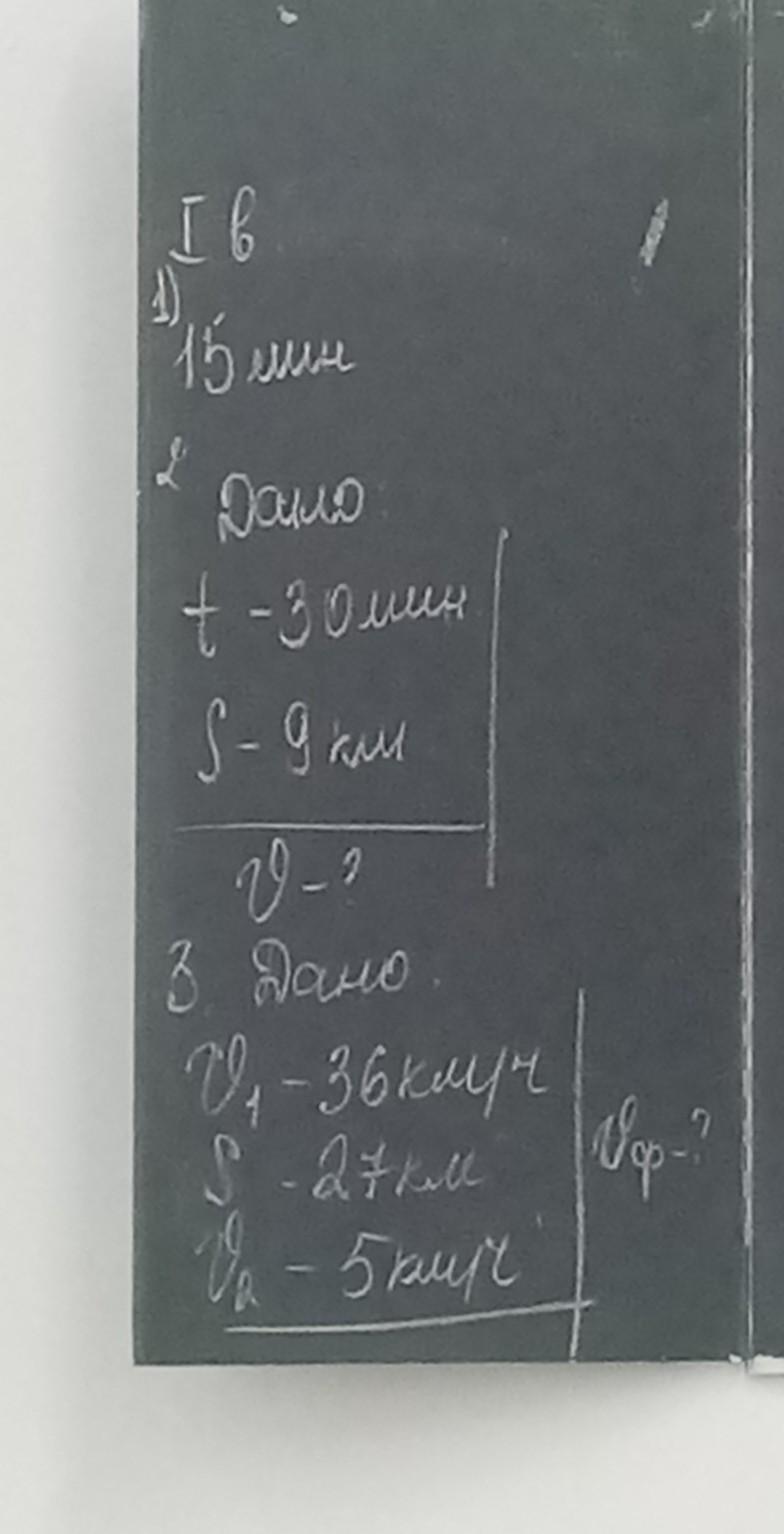 I в
1)
15 мин
2 Дано:
t - 30 мин
S - 9 км
V - ?
3. Дано.
V₁ - 36 км/ч
S - 27 км
Vф - ?
V₂ - 5 км/ч